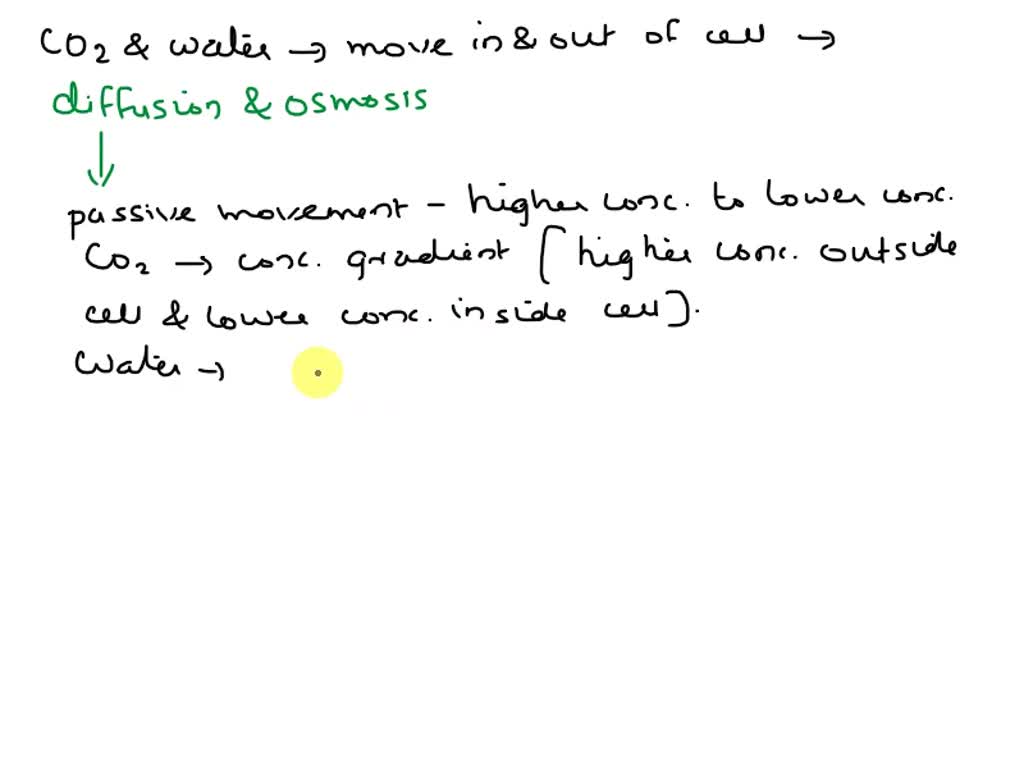 CO2 & water → move in & out of cell →
diffusion & osmosis
↓
passive movement - higher conc. to lower conc.
CO2 → conc. gradient [higher conc. outside
cell & lower conc. inside cell].
Water →